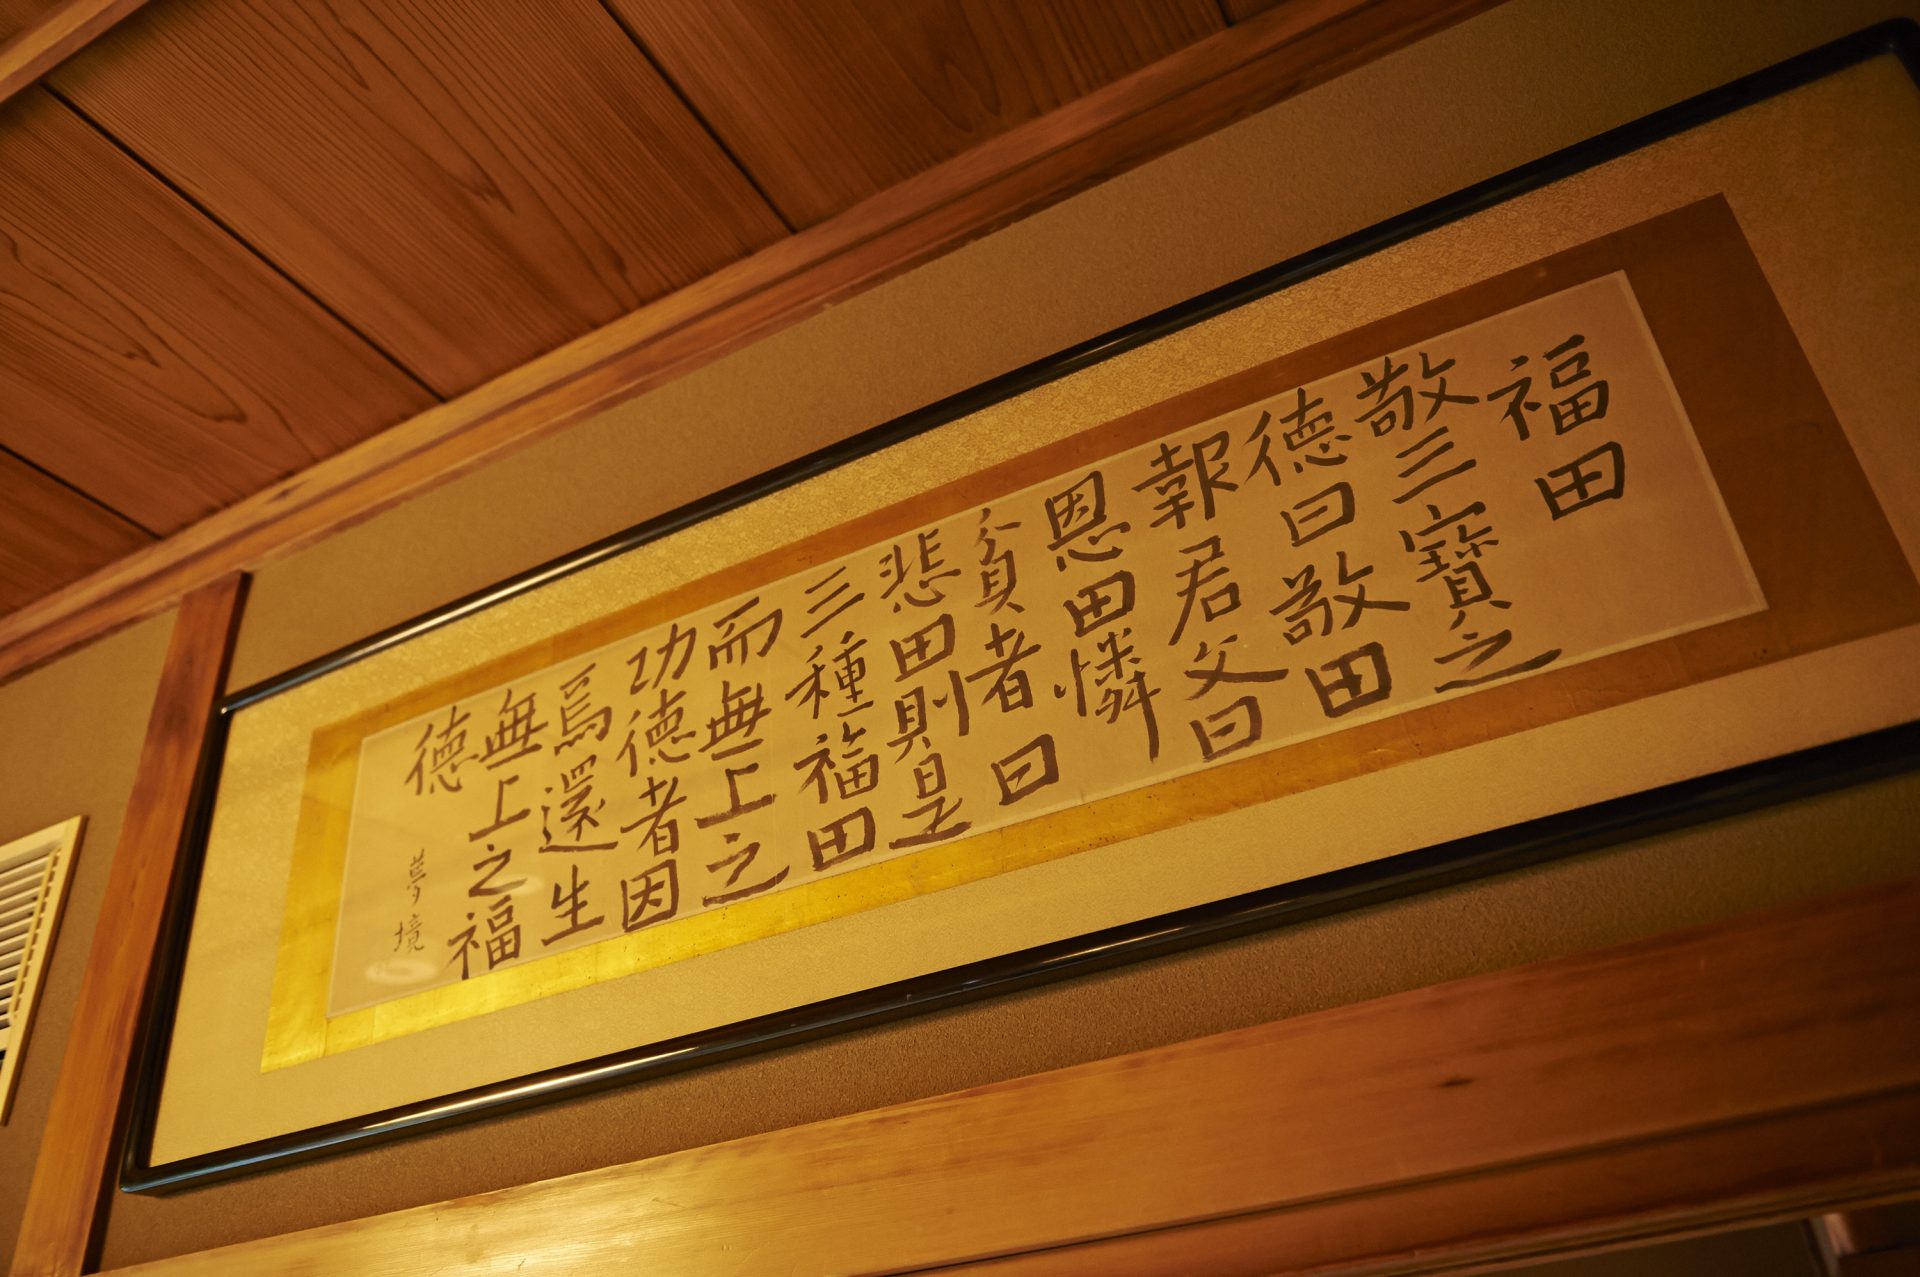 福田
敬三寶之
德曰敬田
報君父曰
恩田憐
貧者曰
悲田則是
三種福田
而無上之
功德者因
焉還生
無上之福
德
夢境